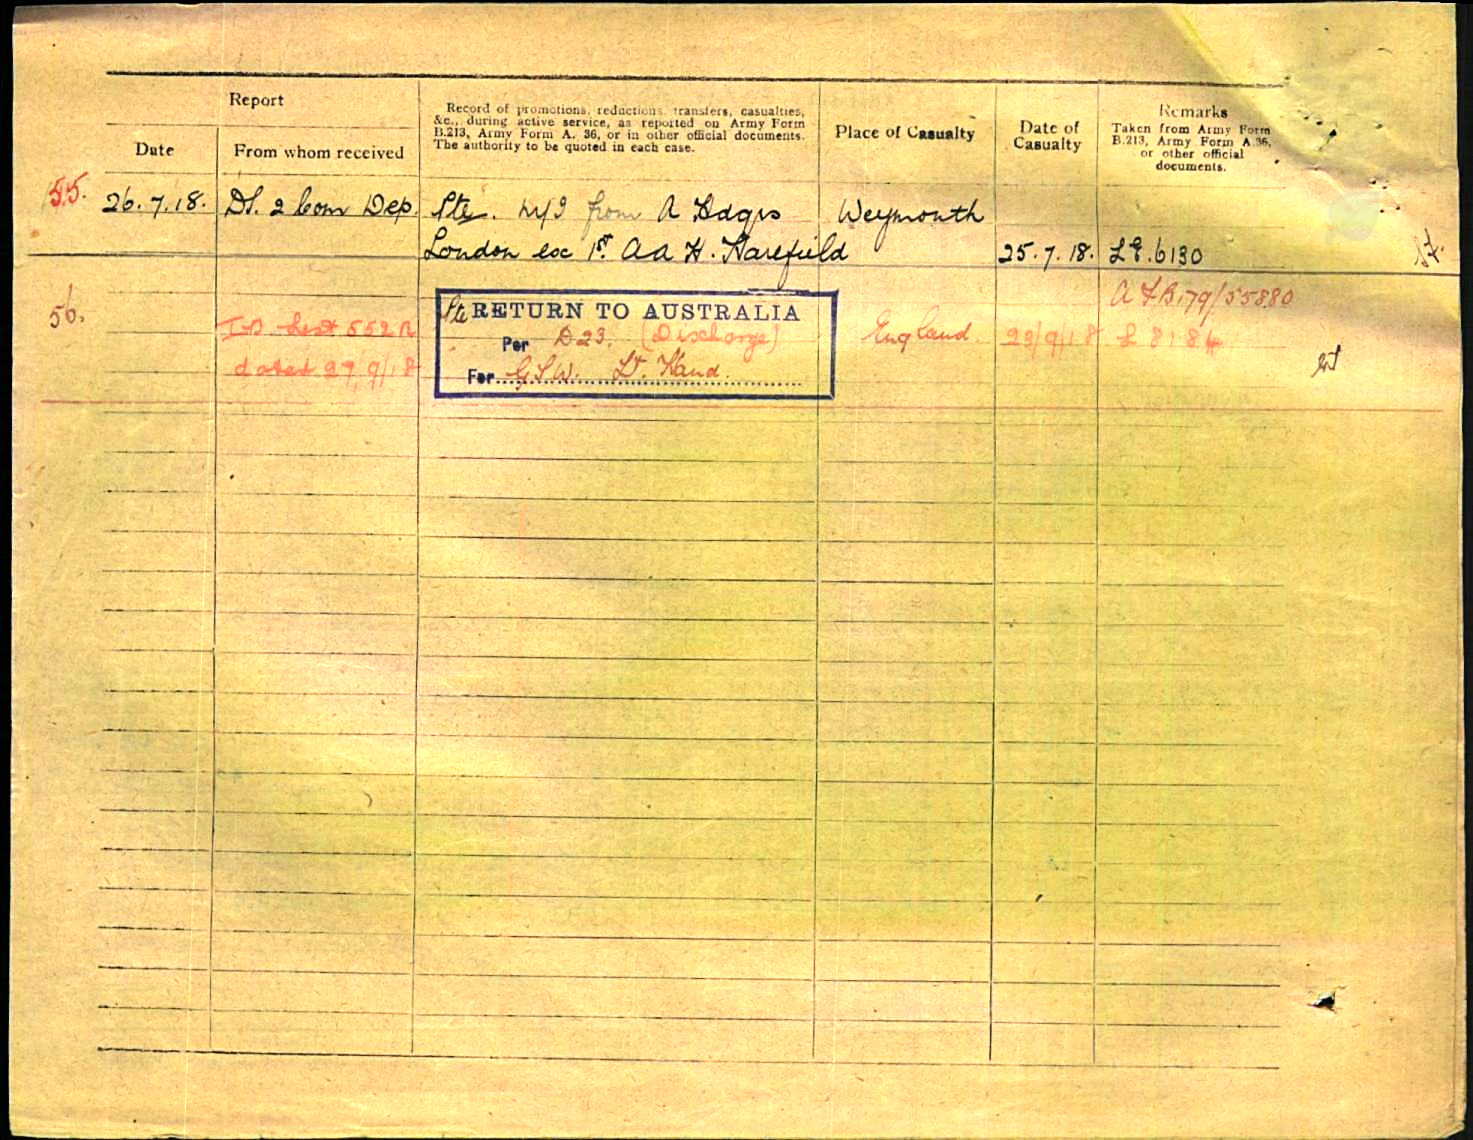 Report
Date
From whom received
Record of promotions, reductions, transfers, casualties,
&c., during active service, as reported on Army Form
B.213, Army Form A. 36, or in other official documents.
The authority to be quoted in each case.
Place of Casualty
Date of
Casualty
Remarks
Taken from Army Form
B.213, Army Form A.36,
or other official
documents.
55. 26.7.18. 2 Com Dep. Pte. M/I from A Hdqrs Weymouth
London exc 1st A A H. Harefield 25.7.18. 6130
56.
A F B.179/55880
Pte RETURN TO AUSTRALIA
552 Per D23. (Discharge) England. 23/9/18 £ 8184
dated 27/9/18 For G.S.W. Lt. Hand.